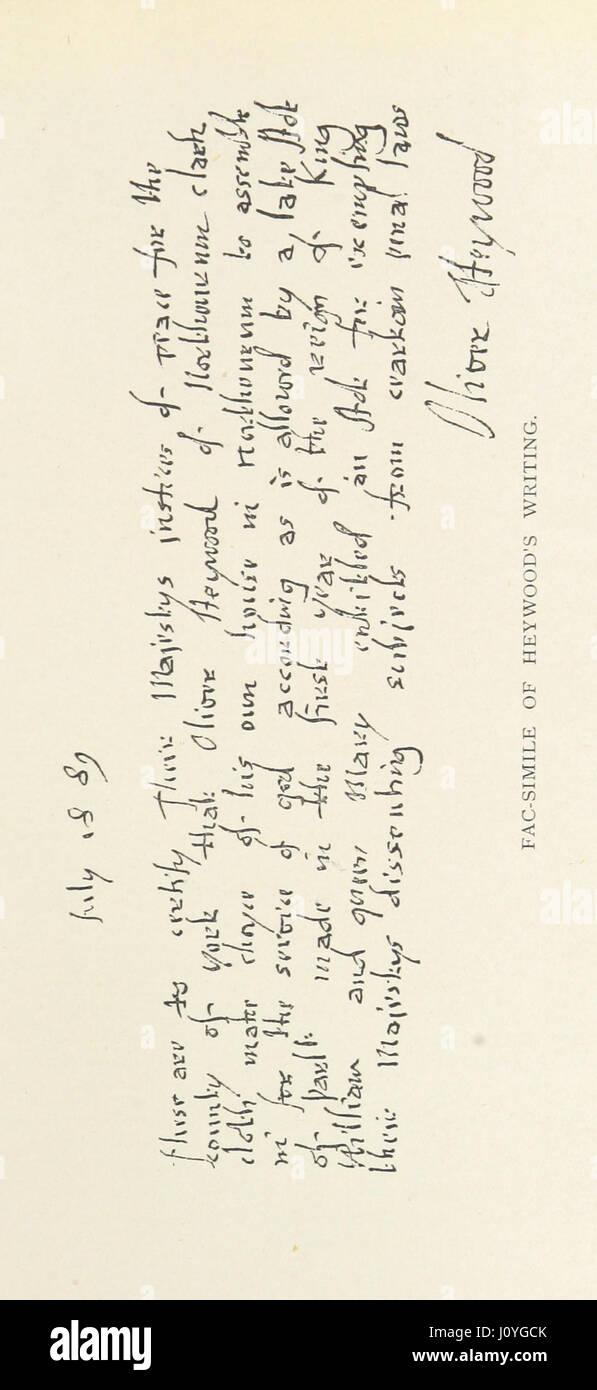 July 18 89
These are to certify Their Majestys justices of peace for the
county of York that Oliver Heywood of Northouram clark
doth make choyce of his own house in Northouram to assemble
in for the service of god according as is allowed by a late Act
of parlt made in the first year of the reign of King
William and queen Mary intitled an Act for exempting
their Majestys dissenting subjects from certain penal laws
Oliver Heywood
FAC-SIMILE OF HEYWOOD'S WRITING.
alamy
Image ID: J0YGCK
www.alamy.com